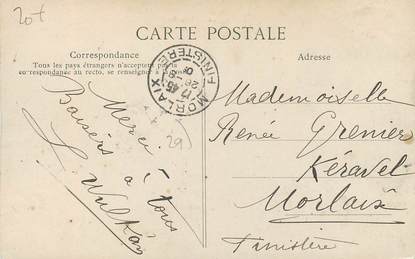 20f
CARTE POSTALE
Correspondance
Tous les pays étrangers n'acceptent pas la
correspondance au recto, se renseigner à la poste
Adresse
MORLAIX
FINISTERE
Merci
Baisers à tous
29
Mademoiselle
Renée Grenier
Kéravel
Morlaix
Finistère